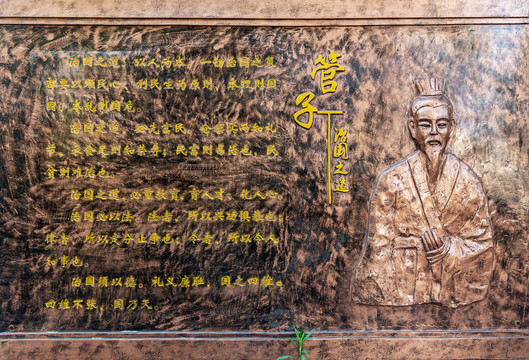 管子
治国之道
治国之道，以人为本。一切治国之策
都要以顺民心、利民生为原则，本理则国
固，本乱则国危。
治国之道，必先富民。仓廪实而知礼
节，衣食足则知荣辱；民富则易治也，民
贫则难治也。
治国之道，必重教育，育人才、化人心。
治国必以法。法者，所以兴功惧暴也；
律者，所以定分止争也；令者，所以令人
知事也。
治国须以德。礼义廉耻，国之四维。
四维不张，国乃灭。